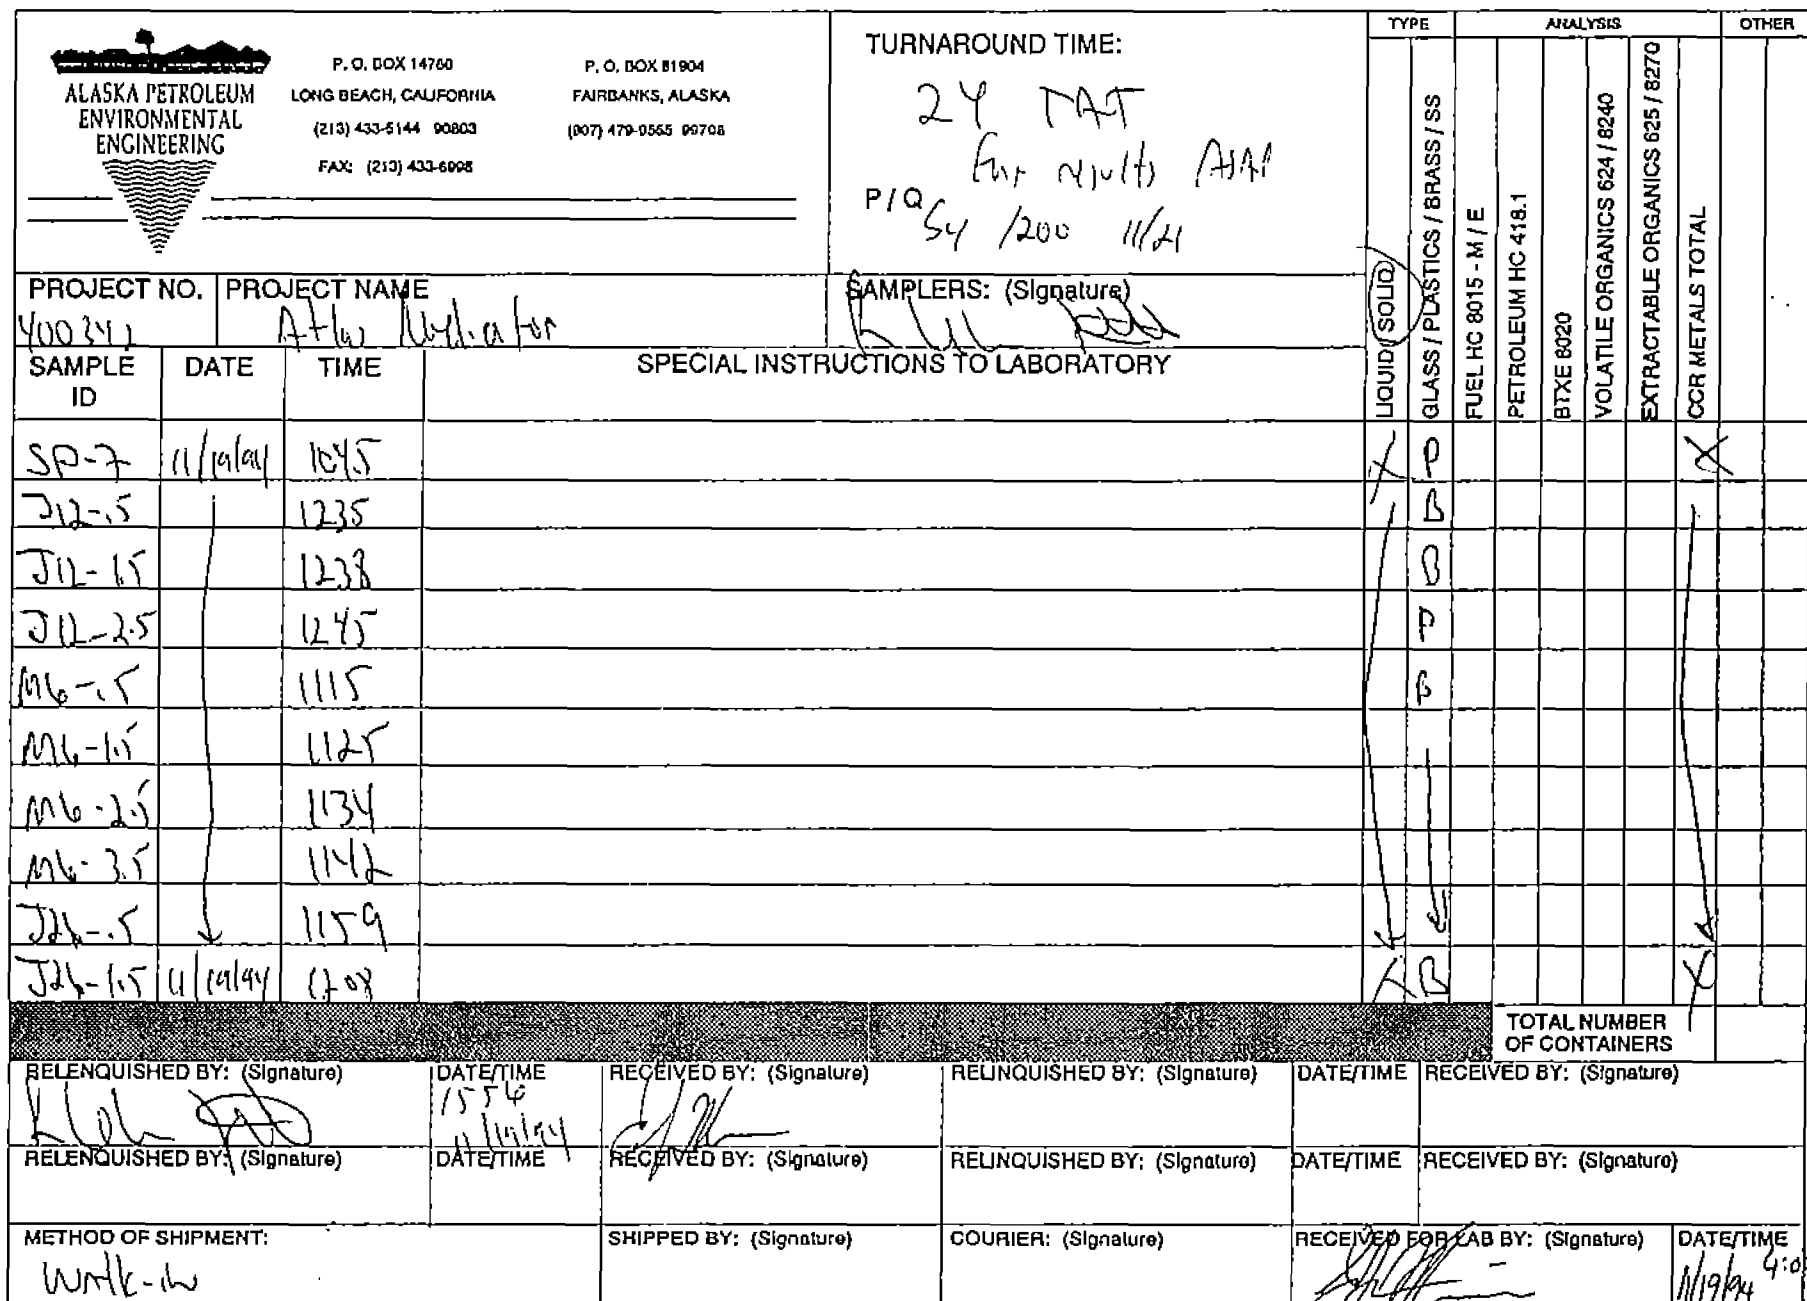 ALASKA PETROLEUM
ENVIRONMENTAL
ENGINEERING
P. O. BOX 14760
LONG BEACH, CALIFORNIA
(213) 433-5144 90803
FAX: (213) 433-6998
P. O. BOX 81904
FAIRBANKS, ALASKA
(907) 479-9555 99708
TURNAROUND TIME:
24 TAT
results ASAP
P/Q
/200 11/21
TYPE
ANALYSIS
OTHER
LIQUID / SOLID
GLASS / PLASTICS / BRASS / SS
FUEL HC 8015 - M / E
PETROLEUM HC 418.1
BTXE 8020
VOLATILE ORGANICS 624 / 8240
EXTRACTABLE ORGANICS 625 / 8270
CCR METALS TOTAL
PROJECT NO.
400342
PROJECT NAME
SAMPLERS: (Signature)
SAMPLE ID DATE TIME SPECIAL INSTRUCTIONS TO LABORATORY
SP-7 11/19/94 1045 X P X
J12-.5 1235 B
J12-1.5 1238 B
J12-2.5 1245 P
M6-.5 1115 B
M6-1.5 1125
M6-2.5 1134
M6-3.5 1142
J26-.5 1159
J26-1.5 11/19/94 1208 X B X
TOTAL NUMBER
OF CONTAINERS
RELENQUISHED BY: (Signature) DATE/TIME RECEIVED BY: (Signature) RELINQUISHED BY: (Signature) DATE/TIME RECEIVED BY: (Signature)
11/19/94
RELENQUISHED BY: (Signature) DATE/TIME RECEIVED BY: (Signature) RELINQUISHED BY: (Signature) DATE/TIME RECEIVED BY: (Signature)
METHOD OF SHIPMENT: SHIPPED BY: (Signature) COURIER: (Signature) RECEIVED FOR LAB BY: (Signature) DATE/TIME
Walk-in 11/19/94